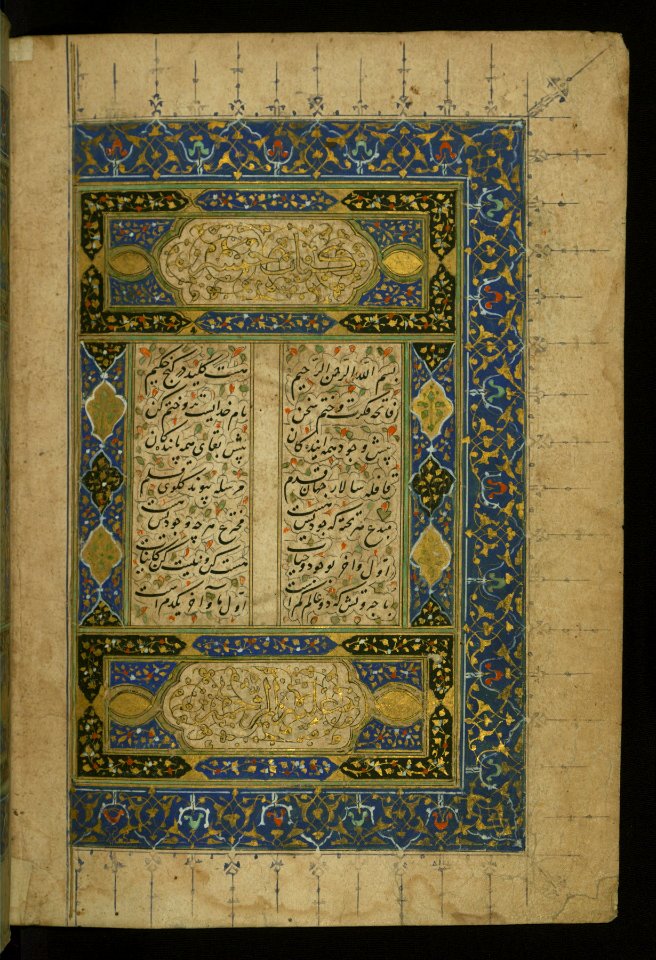 کتاب خمسه
بسم الله الرحمن الرحیم هست کلید در گنج حکیم
فاتحه فکرت و ختم سخن نام خدایست برو ختم کن
پیش وجود همه آیندگان بیش بقای همه پایندگان
قافله سالار جهان قدم مرسله پیوند گلوی قلم
مبدع هر چشمه که جودیش هست مخترع هر چه وجودیش هست
اول و آخر بوجود و حیات هست کن و نیست کن کاینات
با جبروتش که دو عالم کم است اول ما و آخر ما یکدم است
علیه الرحمه